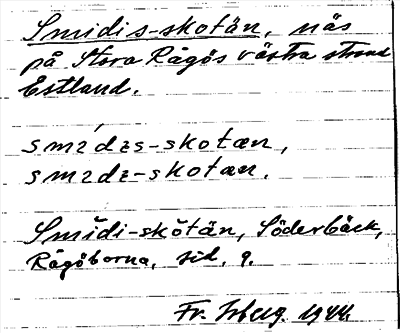 Smidis-skotän, näs
på Stora Rågös västra strand
Estland.
smɪdɪs-skotæn,
smɪdɪ-skotæn.
Smĭdi-skŏtän, Söderbäck,
Rågöborna, sid. 9.
Fr. 1944.